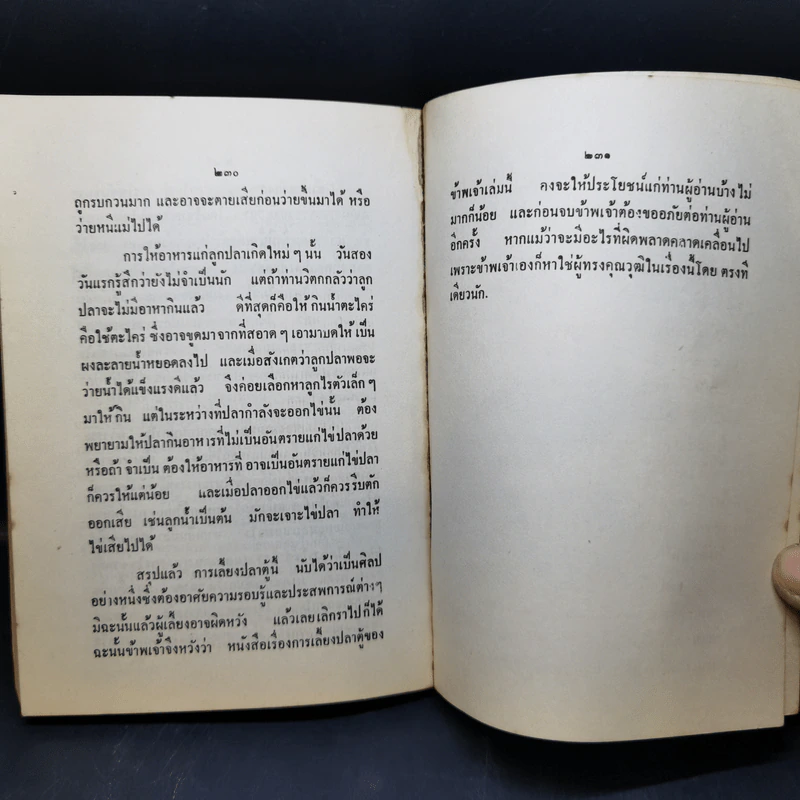 ๒๓๐
ถูกรบกวนมาก และอาจจะตายเสียก่อนว่ายขึ้นมาได้ หรือ
ว่ายหนีแม่ไปได้
การให้อาหารแก่ลูกปลาเกิดใหม่ ๆ นั้น วันสอง
วันแรกรู้สึกว่ายังไม่จำเป็นนัก แต่ถ้าท่านวิตกกลัวว่าลูก
ปลาจะไม่มีอาหากินแล้ว ดีที่สุดก็คือให้ กินน้ำตะไคร่
คือใช้ตะไคร่ ซึ่งอาจขูดมาจากที่สอาด ๆ เอามาบดให้ เป็น
ผงละลายน้ำหยอดลงไป และเมื่อสังเกตว่าลูกปลาพอจะ
ว่ายน้ำได้แข็งแรงดีแล้ว จึงค่อยเลือกหาลูกไรตัวเล็ก ๆ
มาให้ กิน แต่ในระหว่างที่ปลากำลังจะออกไข่นั้น ต้อง
พยายามให้ปลากินอาหารที่ไม่เป็นอันตรายแก่ไข่ปลาด้วย
หรือถ้า จำเป็น ต้องให้อาหารที่ อาจเป็นอันตรายแก่ไข่ปลา
ก็ควรให้แต่น้อย และเมื่อปลาออกไข่แล้วก็ควรรีบตัก
ออกเสีย เช่นลูกน้ำเป็นต้น มักจะเจาะไข่ปลา ทำให้
ไข่เสียไปได้
สรุปแล้ว การเลี้ยงปลาตู้นี้ นับได้ว่าเป็นศิลป
อย่างหนึ่งซึ่งต้องอาศัยความรอบรู้และประสพการณ์ต่างๆ
มิฉะนั้นแล้วผู้เลี้ยงอาจผิดหวัง แล้วเลยเลิกราไปก็ได้
ฉะนั้นข้าพเจ้าจึงหวังว่า หนังสือเรื่องการเลี้ยงปลาตู้ของ
๒๓๑
ข้าพเจ้าเล่มนี้ คงจะให้ประโยชน์แก่ท่านผู้อ่านบ้าง ไม่
มากก็น้อย และก่อนจบข้าพเจ้าต้องขออภัยต่อท่านผู้อ่าน
อีกครั้ง หากแม้ว่าจะมีอะไรที่ผิดพลาดคลาดเคลื่อนไป
เพราะข้าพเจ้าเองก็หาใช่ผู้ทรงคุณวุฒิในเรื่องนี้โดย ตรงที
เดียวนัก.